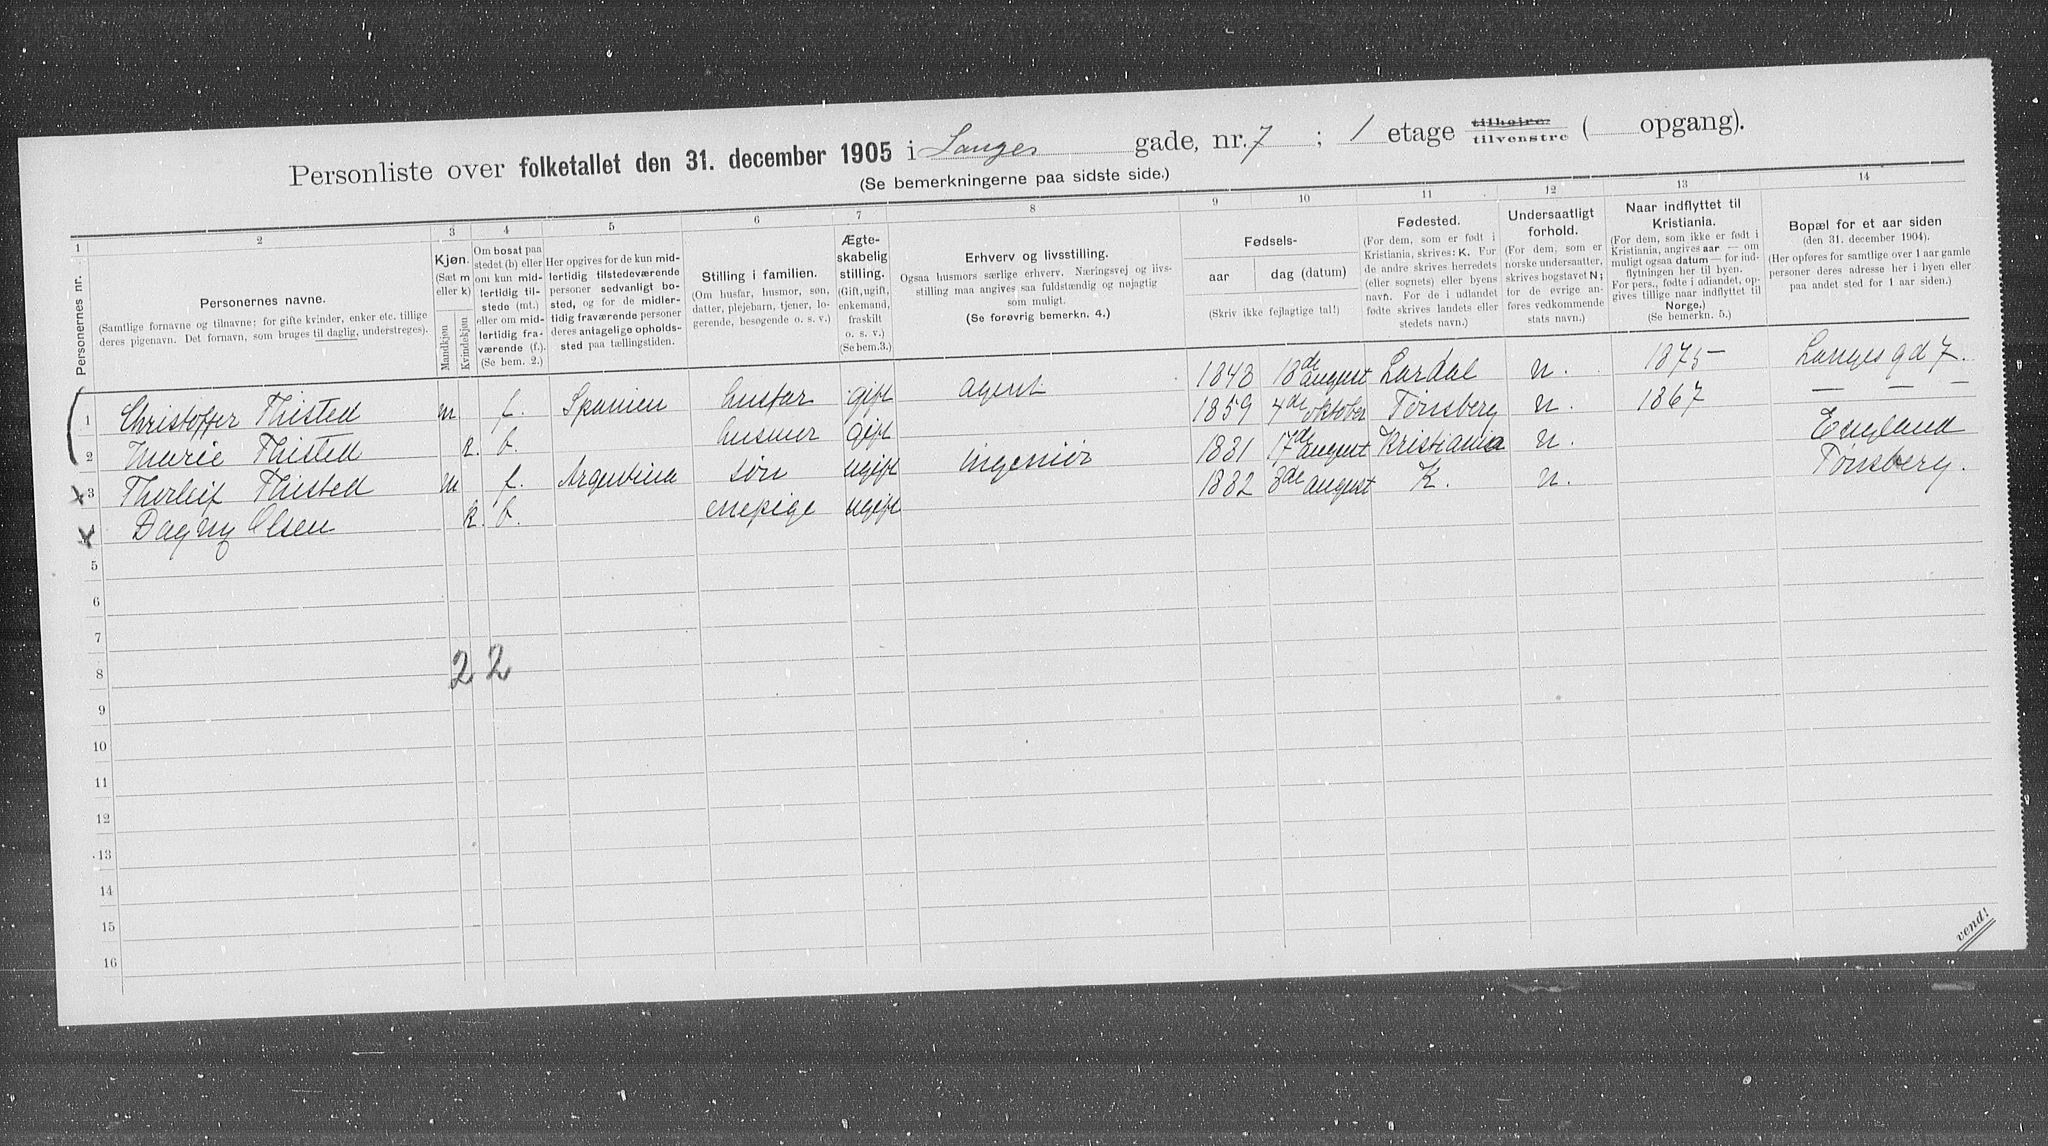 Personliste over folketallet den 31. december 1905 i Langes gade, nr. 7 ; 1 etage tilhøire. tilvenstre ( opgang).
(Se bemerkningerne paa sidste side.)
1 2 3 4 5 6 7 8 9 10 11 12 13 14
Personernes nr.
Personernes navne.
(Samtlige fornavne og tilnavne; for gifte kvinder, enker etc. tillige
deres pigenavn. Det fornavn, som bruges til daglig, understreges).
Kjøn.
(Sæt m
eller k)
Mandkjøn
Kvindekjøn
Om bosat paa
stedet (b) eller
om kun mid-
lertidig til-
stede (mt.)
eller om mid-
lertidig fra-
værende (f.)
(Se bem. 2.)
Her opgives for de kun mid-
lertidig tilstedeværende
personer sedvanligt bo-
sted, og for de midler-
tidig fraværende personer
deres antagelige opholds-
sted paa tællingstiden.
Stilling i familien.
(Om husfar, husmor, søn,
datter, plejebarn, tjener, lo-
gerende, besøgende o. s. v.)
Ægte-
skabelig
stilling.
(Gift, ugift,
enkemand,
fraskilt
o. s. v.)
(Se bem.3.)
Erhverv og livsstilling.
Ogsaa husmors særlige erhverv. Næringsvej og livs-
stilling maa angives saa fuldstændig og nøjagtig
som muligt.
(Se forøvrig bemerkn. 4.)
Fødsels-
aar dag (datum)
(Skriv ikke fejlagtige tal!)
Fødested.
(For dem, som er født i
Kristiania, skrives: K. For
de andre skrives herredets
(eller sognets) eller byens
navn. For de i udlandet
fødte skrives landets eller
stedets navn.)
Undersaatligt
forhold.
(For dem, som er
norske undersaatter,
skrives bogstavet N;
for de øvrige an-
føres vedkommende
stats navn.)
Naar indflyttet til
Kristiania.
(For dem, som ikke er født i
Kristiania, angives aar — om
muligt ogsaa datum — for ind-
flytningen her til byen.
For pers., fødte i udlandet, op-
gives tillige naar indflyttet til
Norge.)
(Se bemerkn. 5.)
Bopæl for et aar siden
(den 31. december 1904).
(Her opføres for samtlige over 1 aar gamle
personer deres adresse her i byen eller
paa andet sted for 1 aar siden.)
1 Christoffer Thisted m. f. Spanien husfar gift agent 1848 18de august Lardal n. 1875 – Langes gd 7.
2 Marie Thisted k. b. husmor gift 1859 4de oktober Tønsberg n. 1867 — — —
3 Thorleif Thisted m f. Argentina søn ugift ingeniør 1881 17de august Kristiania n. England
4 Dagny Olsen k. b. enepige ugift 1882 3de august K. n. Tønsberg.
5
6
7
8 2 2
9
10
11
12
13
14
15
16
vend!